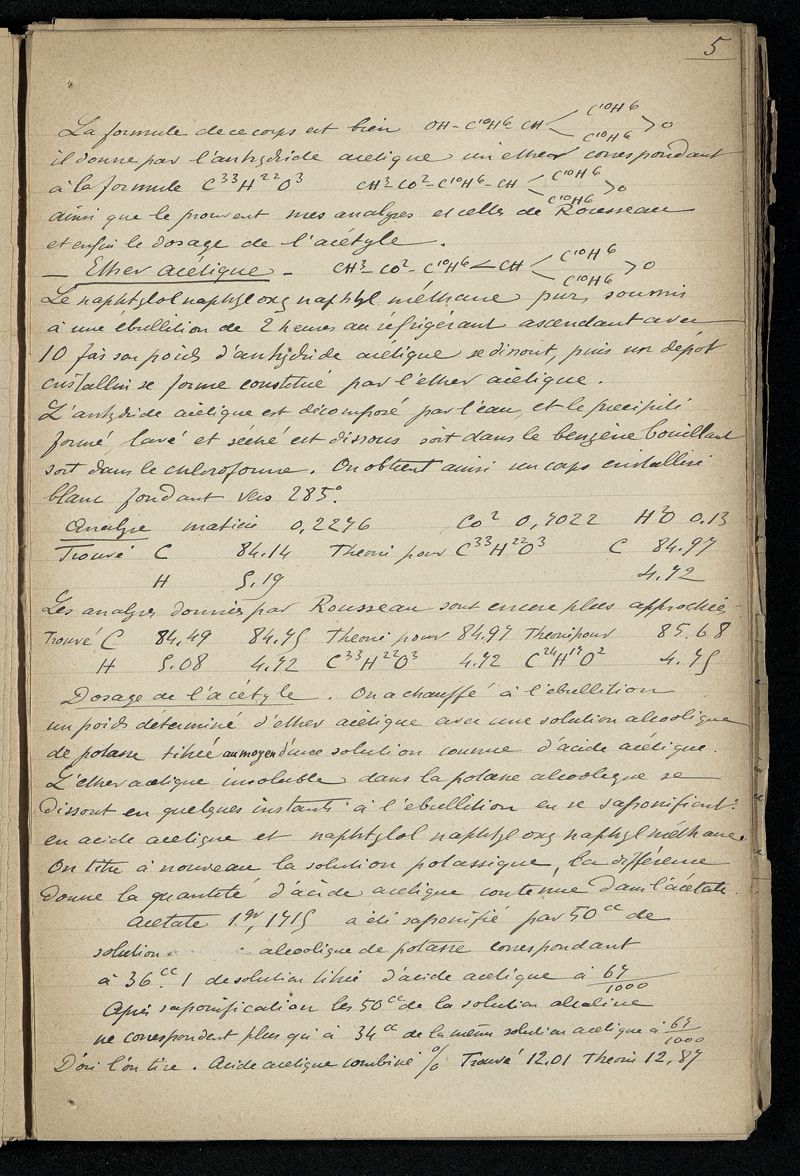 5
La formule de ce corps est bien OH - C10H6 - CH < C10H6 C10H6 > O
il donne par l'anhydride acétique un ether correspondant
à la formule C33H22O3 CH3-CO2-C10H6-CH < C10H6 C10H6 > O
ainsi que le prouvent mes analyses et celles de Rousseau
et enfin le dosage de l'acétyle.
- Ether acétique - CH3-CO2-C10H6-CH < C10H6 C10H6 > O
Le naphtylol naphyl oxy naphtyl méthane pur, soumis
à une ébullition de 2 heures au réfrigérant ascendant avec
10 fois son poids d'anhydride acétique se dissout, puis un dépôt
cristallin se forme constitué par l'ether acétique.
L'anhydride acétique est décomposé par l'eau, et le précipité
formé lavé et séché est dissous soit dans le benzène bouillant
soit dans le chloroforme. On obtient ainsi un corps cristallisé
blanc fondant vers 285°.
Analyse matière 0,2276 CO2 0,7022 H2O 0.13
Trouvé C 84.14 Theorie pour C33H22O3 C 84.97
H 5.19 4.72
Les analyses données par Rousseau sont encore plus approchées
Trouvé C 84,49 84.75 Theorie pour 84.97 Theorie pour 85.68
H 5.08 4.72 C33H22O3 4.72 C24H17O2 4.75
Dosage de l'acétyle. On a chauffé à l'ebullition
un poids determiné d'ether acétique avec une solution alcoolique
de potasse titrée au moyen d'une solution connue d'acide acétique.
L'ether acetique insoluble dans la potasse alcoolique se
dissout en quelques instants à l'ebullition en se saponifiant
en acide acetique et naphtylol naphtyl oxy naphyl méthane.
On titre à nouveau la solution potassique, la différence
donne la quantité d'acide acetique contenue dans l'acétate.
Acetate 1gr,1715 a été saponifié par 50cc de
solution alcoolique de potasse correspondant
à 36cc.1 de solution titrée d'acide acetique à 67/1000
Après saponification les 50cc de la solution alcaline
ne correspondent plus qu'à 34cc de la même solution acetique à 67/1000
D'où l'on tire. Acide acetique combiné % Trouvé 12.01 Theorie 12,87